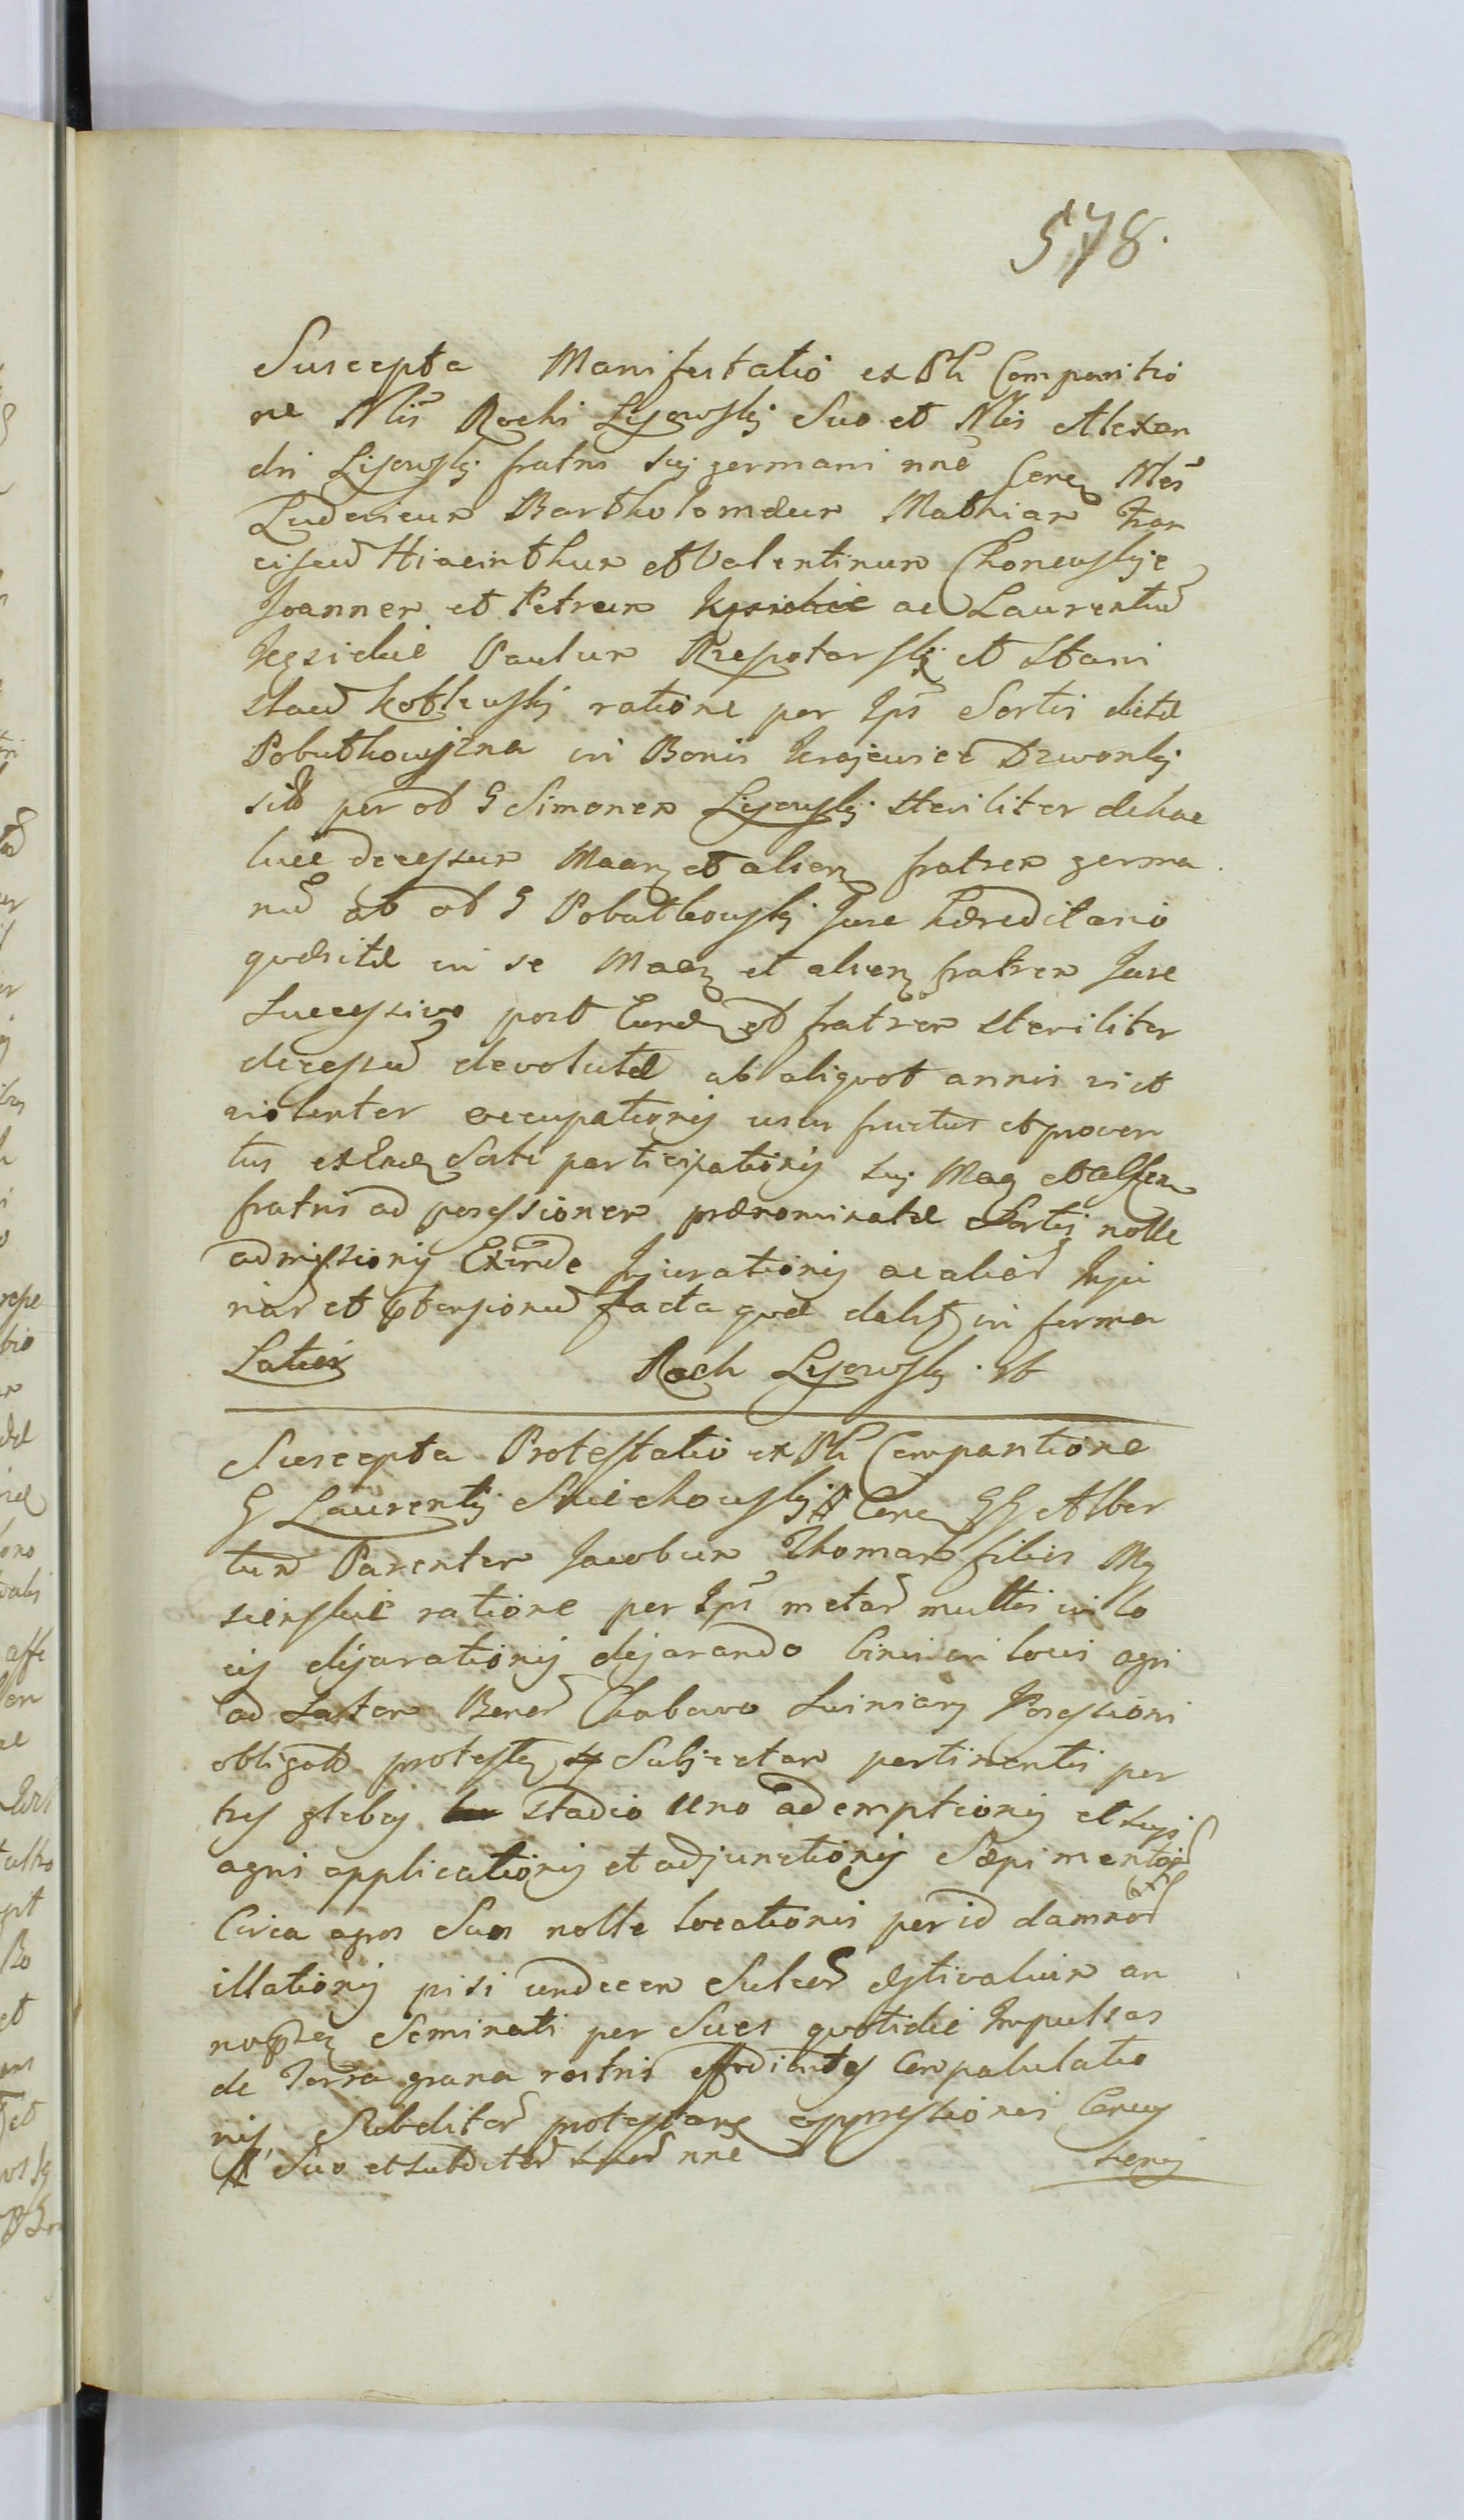 578.
Suscepta Manifestatio ex Pli Comparitio
ne Nlis Rochi Lijowskj Suo et Nlis Alexan
dri Lijowskj fratris suj germani nne Cone Nles
Ludovicum Bartholomæum Mathiam Fran
ciscũ Hiacinthum et Valentinum Chonowskje
Joannem et Petrum ac Laurentiũ
Paulum Rzepotarskj et Stani
slaũ Kotlewskj ratione per Ips Sortis dictæ
Pobutkowizna in Bonis Krajewice Dzwonkj
sitæ per ob G Simonem Lijowskj steriliter de hac
luce decessum Maan et alien fratrem germa
nũ ab ob G Pobutkowskj Jure hæreditario
quæsitæ in se Maen et alien fratrem Jure
Successivo post Eund ob fratrem steriliter
decessũ devolutæ ab aliquot annis vi et
violenter occupationis usus fructus et proven
tus ex Ead Sorte participationis suj Mag et alsen
fratris ad possessionem prænominatæ Sortis nolle
admissionis Exinde Injurationis ac aliaȓ Inju
riaȓ et Ptensionũ facta quæ dabit in forma
Latiori Roch Lijowskj
Suscepta Protestatio ex Pli Comparitione
G Laurentij Smiechowskj # Cone GG Alber
tum Parentem Jacobum Thomam filios My
ratione per Ips metaȓ multis in lo
cis dejarationis dejarando binis in locis agri
ad Latam Bonoȓ Chabowo Swiniary Possessioni
obligat protestan Subjectam pertinentis per
tres glebas stadio Uno ademptionis et suis
agris applicationis et adjunctionis Sæpimentoȓ
Circa agros Suos nolle locationis per id damnoȓ
illationis pisi undecem Sulcoȓ æstivalium an
no Seminati per Sues quotidie Impulsas
de Terra grana rostris effodientes Conpabulatio
nis Subditoȓ protestan oppressionis Concus
# Suo et subditoȓ suoȓ nne sionis